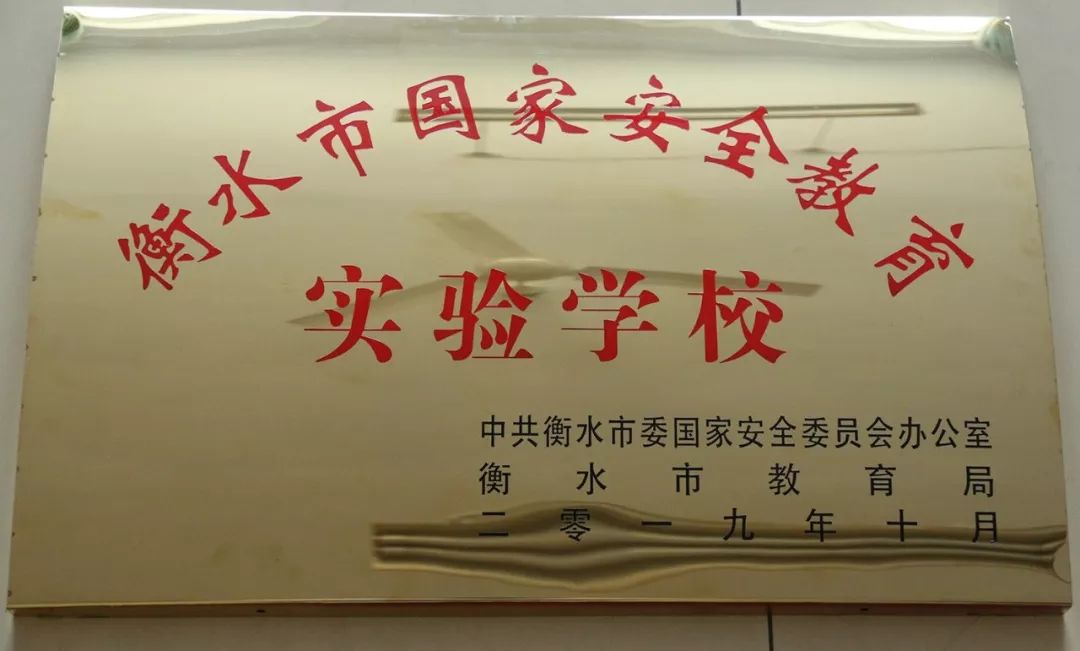 衡水市国家安全教育
实验学校
中共衡水市委国家安全委员会办公室
衡水市教育局
二零一九年十月